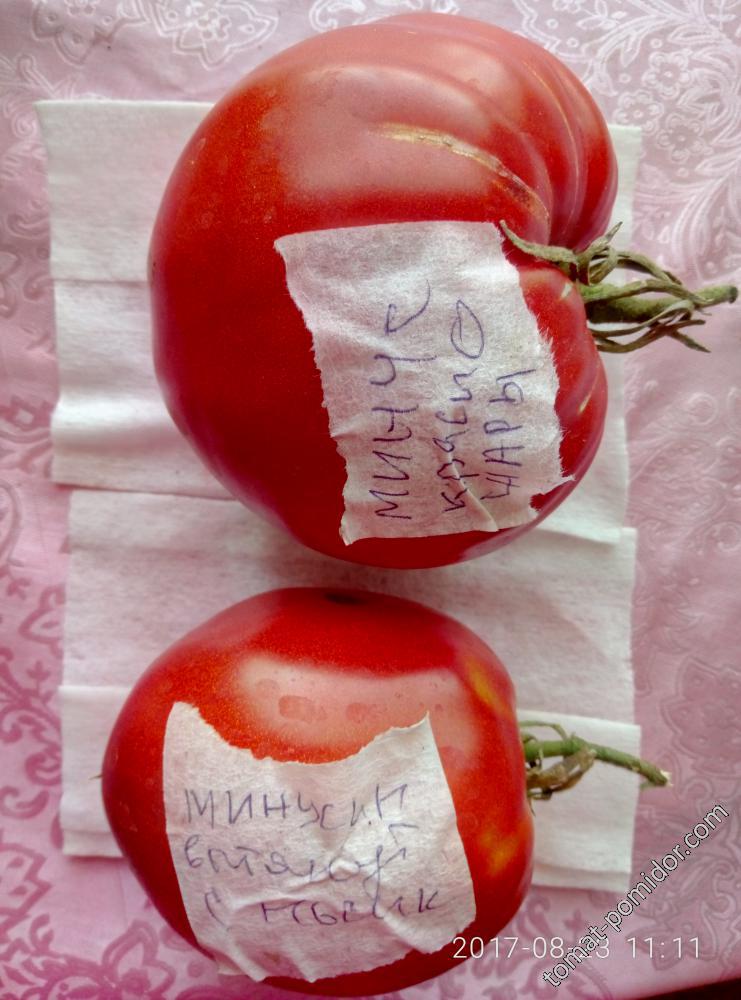 МИНУС
красно
ШАРЫ
МИНУСИН
с
2017-08- 3 11:11
tomat-pomidor.com